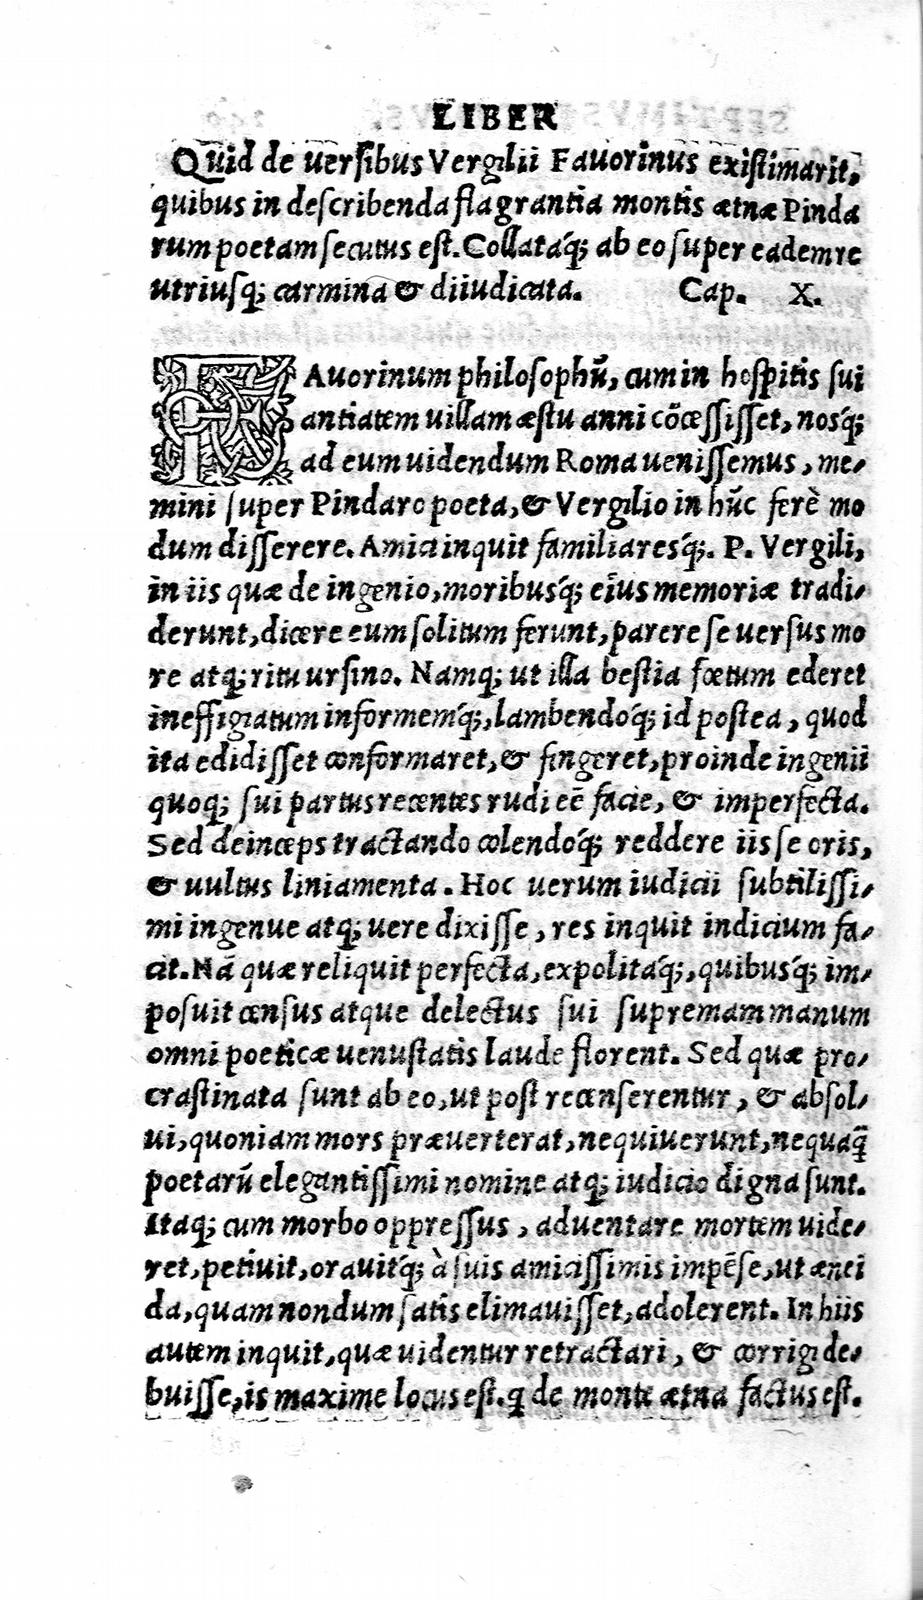 LIBER
Quid de uersibus Vergilii Fauorinus existimarit,
quibus in describenda flagrantia montis ætnæ Pinda
rum poetam secutus est. Collataq́; ab eo super eadem re
utriusq; carmina & diiudicata. Cap. X.
FAuorinum philosophũ, cum in hospitis sui
antiatem uillam æstu anni cõcessisset, nosq́;
ad eum uidendum Roma uenissemus, me-
mini super Pindaro poeta, & Vergilio in hũc ferè mo
dum disserere. Amici inquit familiaresq́;. P. Vergili,
in iis quæ de ingenio, moribusq́; eius memoriæ tradi-
derunt, dicere eum solitum ferunt, parere se uersus mo
re atq; ritu ursino. Namq; ut illa bestia fœtum ederet
ineffigiatum informemq́;, lambendoq́; id postea, quod
ita edidisset conformaret, & fingeret, proinde ingenii
quoq; sui partus recentes rudi eẽ facie, & imperfecta.
Sed deinceps tractando colendoq́; reddere iis se oris,
& uultus liniamenta. Hoc uerum iudicii subtilissi-
mi ingenue atq; uere dixisse, res inquit indicium fa-
cit. Nã quæ reliquit perfecta, expolitaq́;, quibusq́; im-
posuit census atque delectus sui supremam manum
omni poeticæ uenustatis laude florent. Sed quæ pro-
crastinata sunt ab eo, ut post recenserentur, & absol-
ui, quoniam mors præuerterat, nequiuerunt, nequaq̃
poetarũ elegantissimi nomine atq; iudicio digna sunt.
Itaq; cum morbo oppressus, aduentare mortem uide-
ret, petiuit, orauitq́; à suis amicissimis impẽse, ut ænei
da, quam nondum satis elimauisset, adolerent. In hiis
autem inquit, quæ uidentur retractari, & corrigi de-
buisse, is maxime locus est. q̃ de monte ætna factus est.